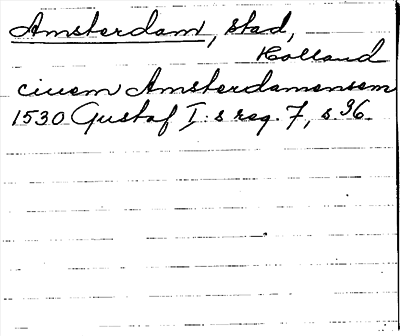 Amsterdam, stad,
Holland
ciuem Amsterdamensem
1530 Gustaf I:s reg. 7, s. 36.